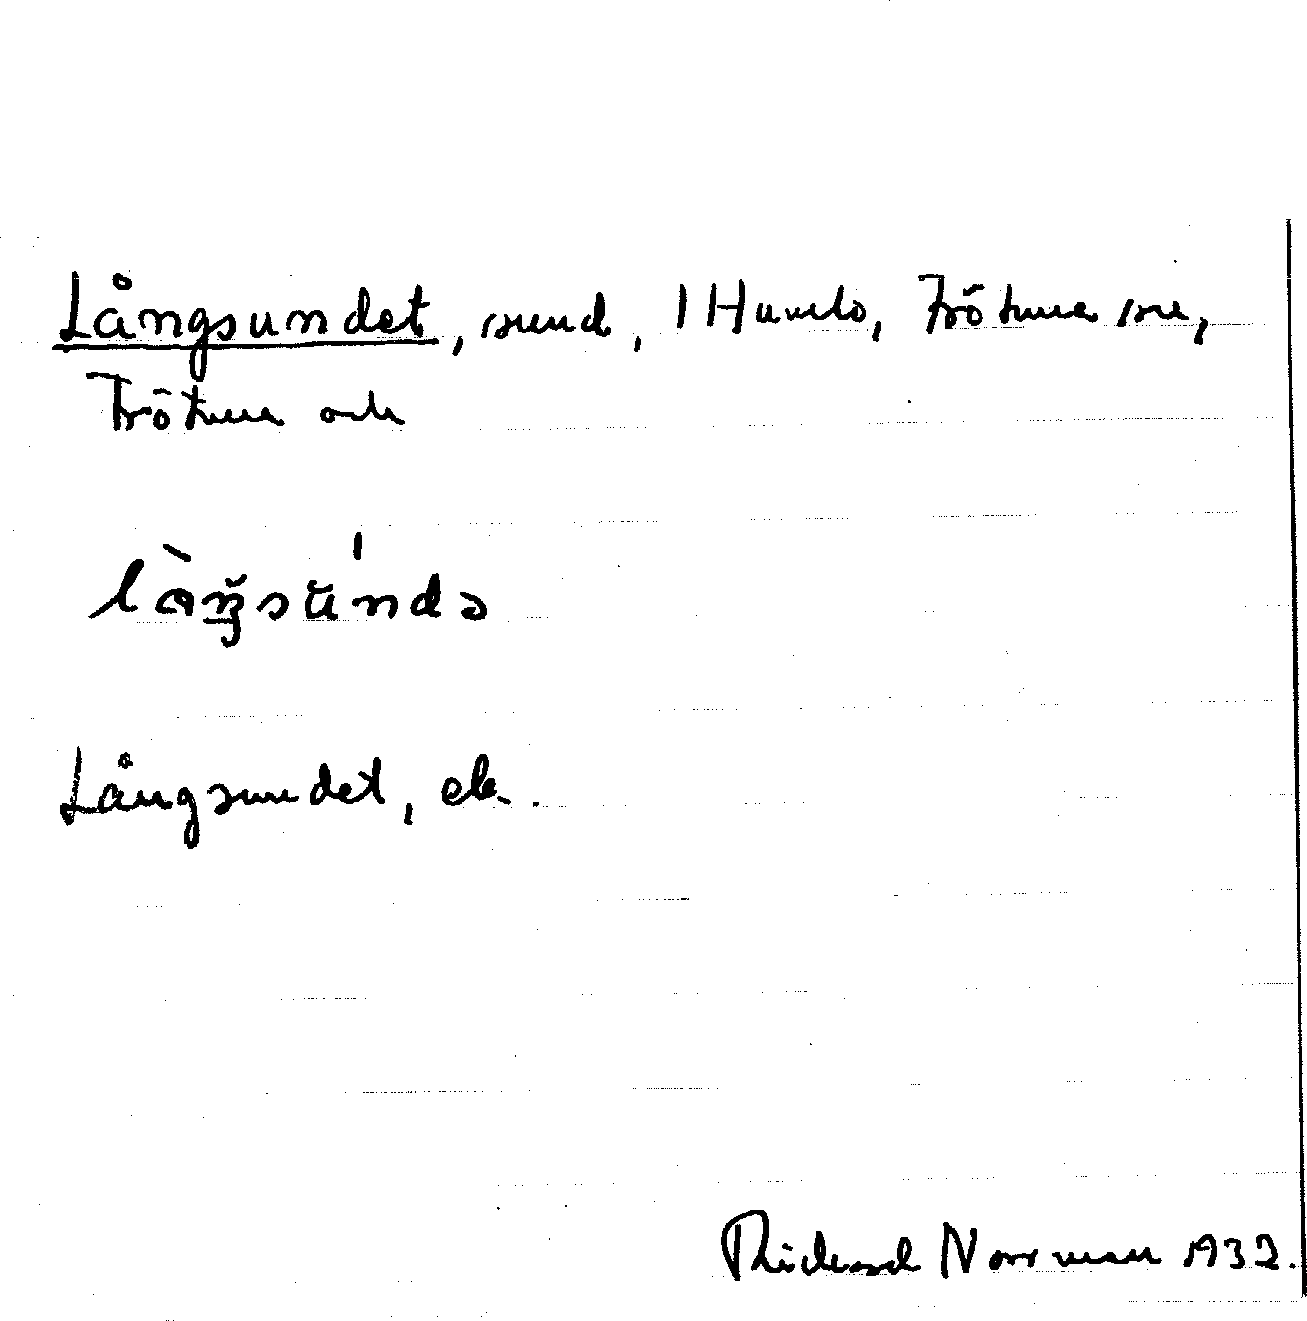 Långsundet, sund, 1 Humlö, Frötuna sn,
Frötuna och
Långsundet, ek.
Richard Norrman 1932.